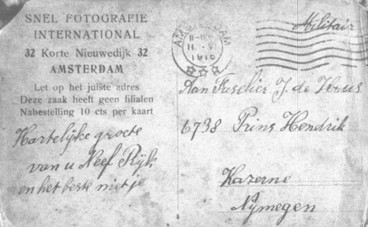 SNEL FOTOGRAFIE
INTERNATIONAL
32 Korte Nieuwedijk 32
AMSTERDAM
Let op het juiste adres
Deze zaak heeft geen filialen
Nabestelling 10 cts per kaart
Hartelijke groete
van u Neef
en het beste met je
AMSTERDAM
Militair
Aan Fuselier J. de
6738 Prins Hendrik
Kazerne
Nymegen